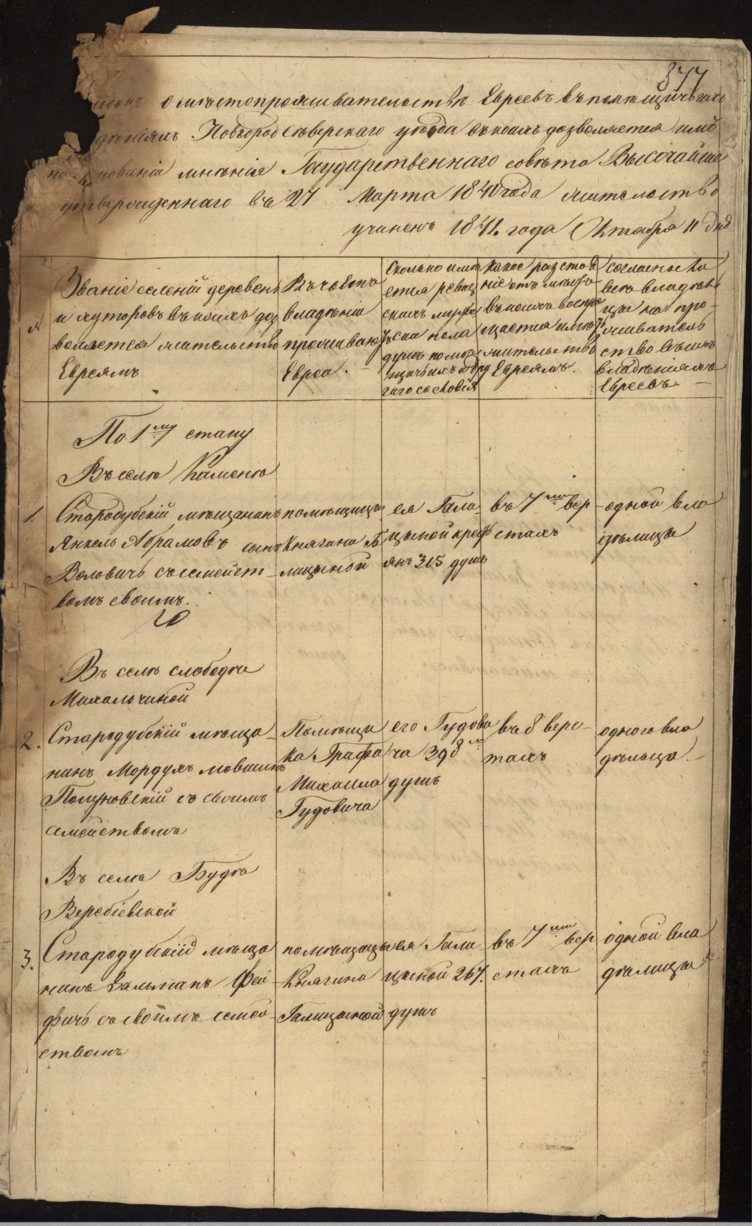 877
о местопроживательстве Евреевъ въ помещичьихъ
Новгородсеверскаго уезда въ коихъ дозволяется имъ
мненія Государственнаго совета Высочайше
утвержденнаго въ 27 Марта 1840 года жительство
учиненъ 1841. года Октября 11 дня
№
Званіе селеній деревень
и хуторовъ въ коихъ доз
воляется жительство
Евреямъ
Въ чьёмъ
владеніи
проживаютъ
Евреи.
Сколько име
ется ревиз
скихъ муже
ска пола
душъ
Какое разстоя
ніе отъ
въ коихъ воспре
щается имъ
жительство
Евреямъ.
Согласно ка
кого владель
ца на про
живатель
ство въ ихъ
владеніяхъ
Евреевъ
По 1му стану
Въ селе Камене
1.
Стародубскій мещанинъ
Янкель Абрамовъ сынъ
Воловичъ съ семейст
вомъ своимъ.
помещицы
Княгини Га
лицыной
ея Гали
цыной крес
янъ 315 душъ
въ 7ми вер
стахъ
одной вла
делицы
Въ селе слободке
Михальчиной
2.
Стародубскій меща
нинъ Мордухъ Мовшинъ
съ своимъ
семействомъ
Помещи
ка Графа
Михаила
Гудовича
его Гудови
ча 398м
душъ
въ 8 верс
тахъ
одного вла
дельца
Въ селе Будке
Веребіевской
3.
Стародубскій меща
нинъ Залманъ Фей
фичъ съ своимъ семей
ствомъ
помещицы
Княгини
Галицыной
ея Гали
цыной 267.
душъ
въ 7ми вер
стахъ
одной вла
делицы